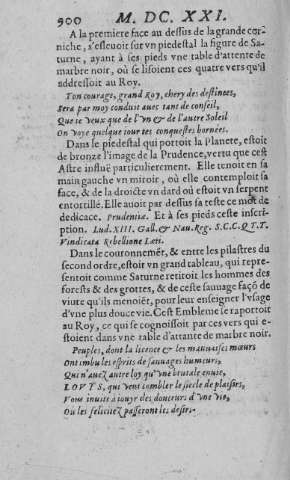 900 M. DC. XXI.
A la premiere face au dessus de la grande cor-
niche, s'esleuoit sur vn piedestal la figure de Sa-
turne, ayant à ses pieds vne table d'attente de
marbre noir, où se lisoient ces quatre vers qu'il
addressoit au Roy.
Ton courage, grand Roy, chery des destinees,
Sera par moy conduit auec tant de conseil,
Que ie veux que de l'vn & de l'autre Soleil
On voye quelque iour tes conquestes bornees.
Dans le piedestal qui portoit la Planete, estoit
de bronze l'image de la Prudence, vertu que cest
Astre influë particulierement. Elle tenoit en sa
main gauche vn miroir, où elle contemploit sa
face, & de la droicte vn dard où estoit vn serpent
entortillé. Elle auoit par dessus sa teste ce mot de
dedicace. Prudentiæ. Et à ses pieds ceste inscri-
ption. Lud. XIII. Gall. & Nau. Reg. S. C. C. Q. T. T.
Vindicata Rebellione Læti.
Dans le couronnemẽt, & entre les pilastres du
second ordre, estoit vn grand tableau, qui repre-
sentoit comme Saturne retiroit les hommes des
forests & des grottes, & de ceste sauuage façõ de
viure qu'ils menoiẽt, pour leur enseigner l'vsage
d'vne plus douce vie. Cest Embleme se raportoit
au Roy, ce qui se cognoissoit par ces vers qui e-
stoient dans vne table d'attante de marbre noir.
Peuples, dont la licence & les mauuaises mœurs
Ont imbu les esprits de sauuages humeurs,
Qui n'auez autre loy qu'vne brutale enuie,
LOVYS, qui vent combler le siecle de plaisirs,
Vous inuite à iouyr des douceurs d'vne vie,
Où les felicitez passeront les desirs.